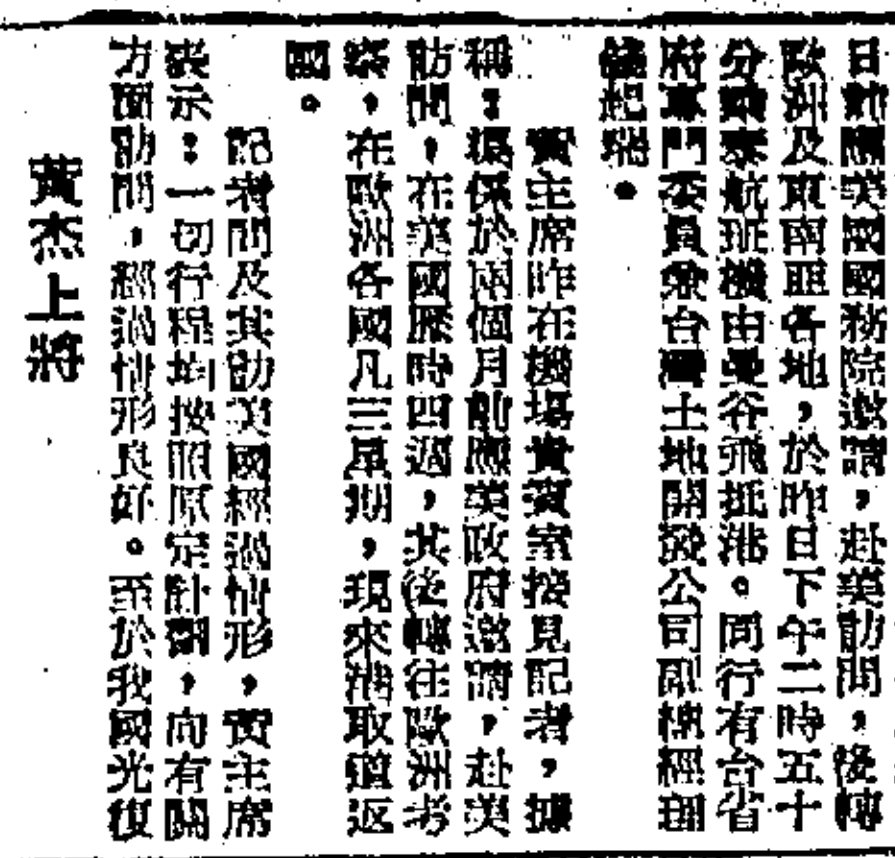 日前應美國國務院邀請，赴美訪問，後轉
歐洲及東南亞各地，於昨日下午二時五十
分乘泰航班機由曼谷飛抵港。同行有台省
府專門委員兼台灣土地開發公司副總經理
起瑞。
黃主席昨在機場貴賓室接見記者，據
稱：渠係於兩個月前應美政府邀請，赴美
訪問，在美國歷時四週，其後轉往歐洲考
察，在歐洲各國凡三星期，現來港取道返
國。
記者問及其訪美國經過情形，黃主席
表示：一切行程均按照原定計劃，向有關
方面訪問，經過情形良好。至於我國光復
黃杰上將